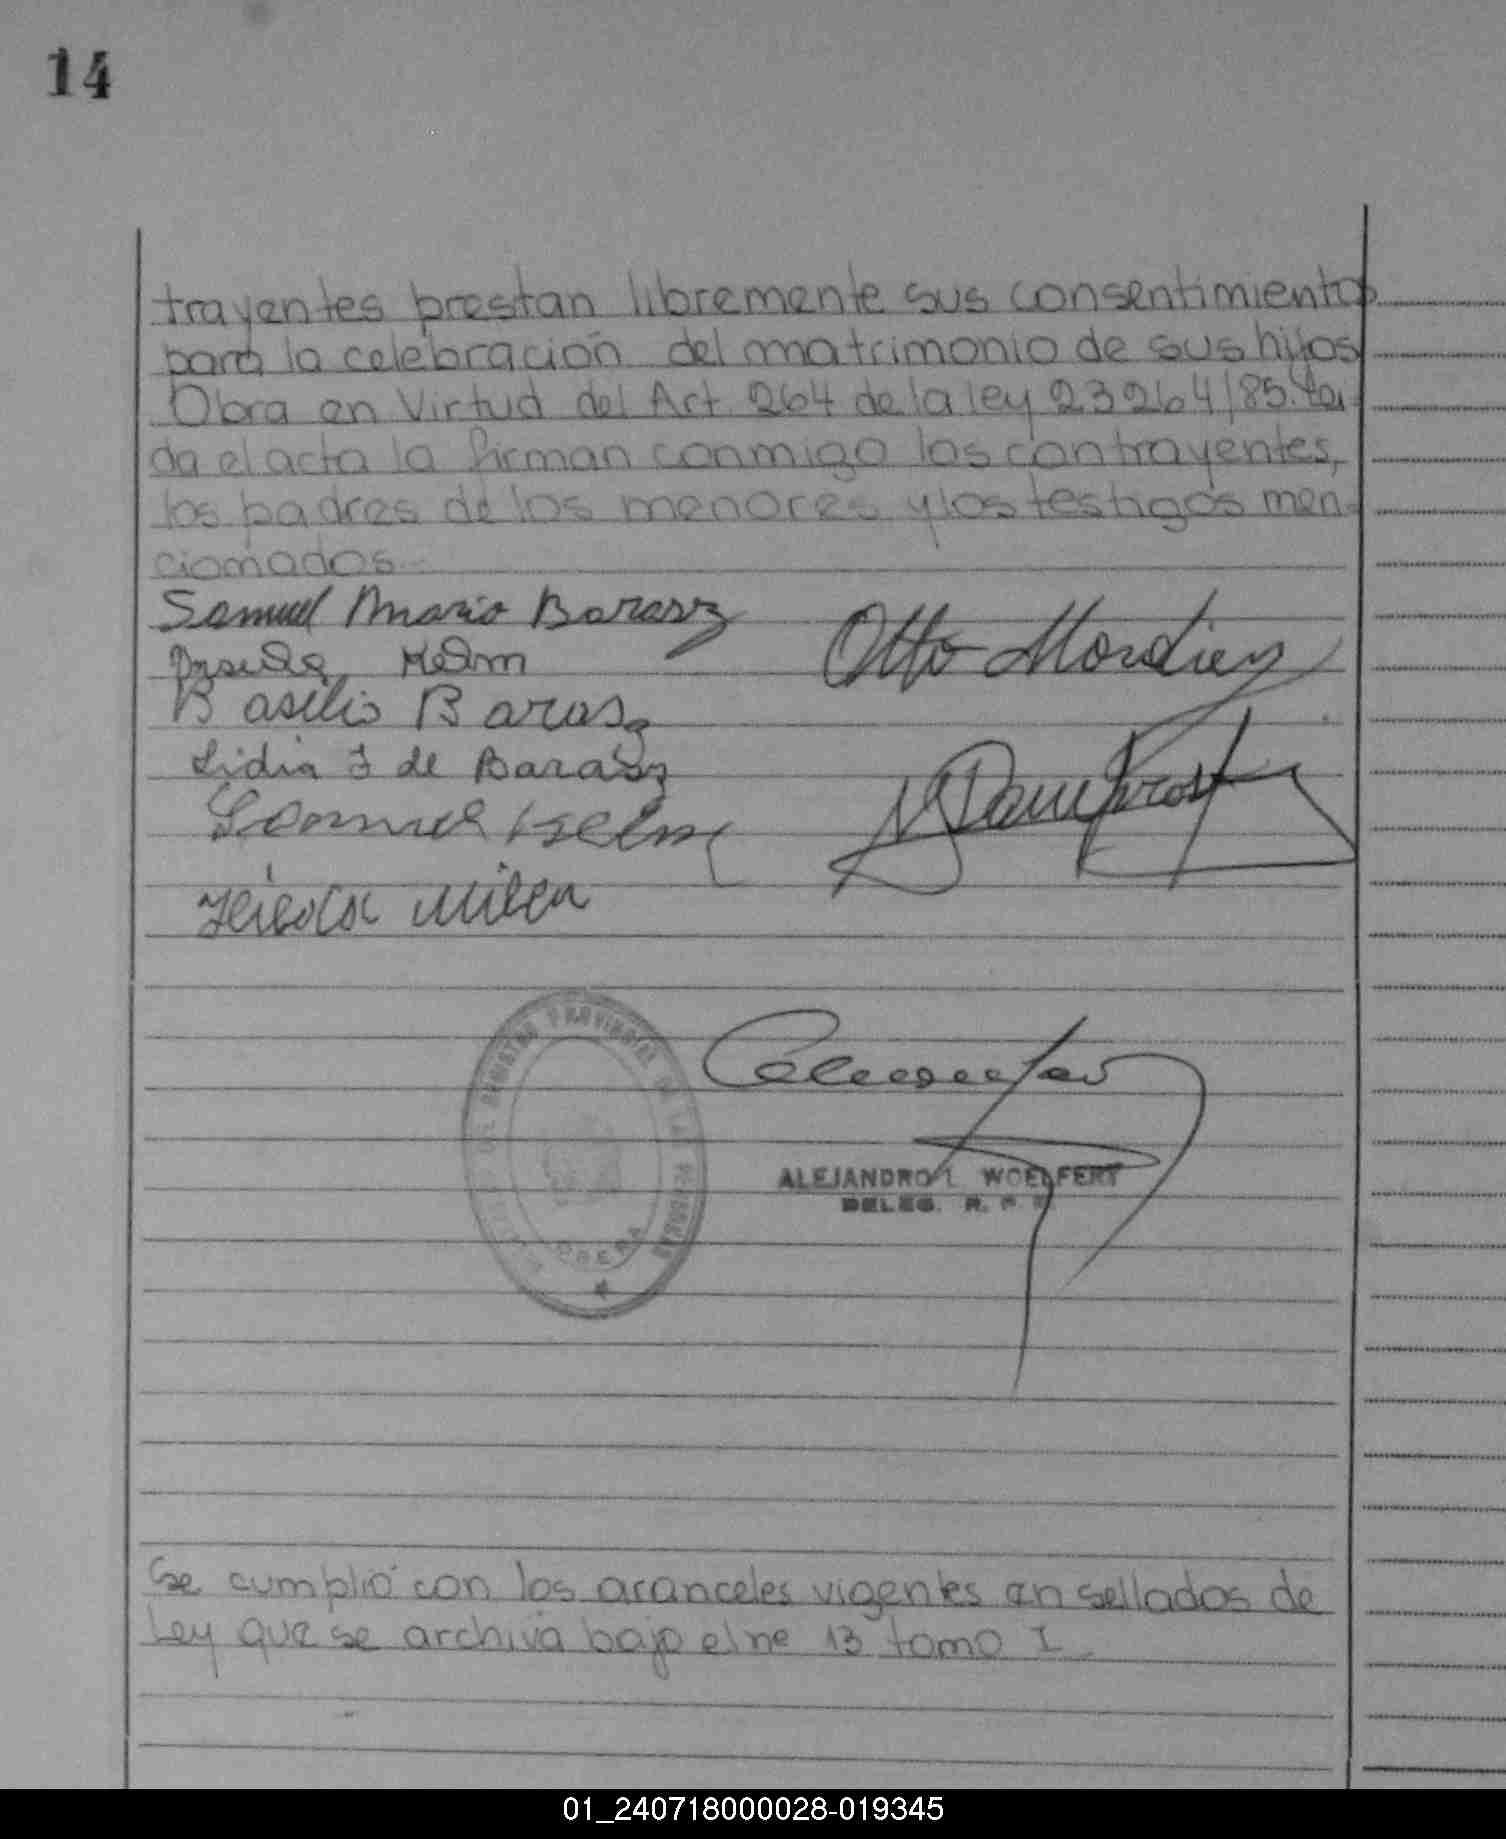 14
trayentes prestan libremente sus consentimientos
para la celebración del matrimonio de sus hijos
Obra en Virtud del Art. 264 de la ley 23264/85. Lei-
da el acta la firman conmigo los contrayentes,
los padres de los menores y los testigos men-
cionados.-
Samuel Mario Barasz
Otto
Kelm
Basilio Barasz
Lidia I de Barasz
Samuel Kelm
ALEJANDRO L. WOELFERT
DELEG. R. P.
REGISTRO PROVINCIAL DE LAS PERSONAS
OBERA
Se cumplió con los aranceles vigentes en sellados de
Ley que se archiva bajo el nº 13 tomo I.
01_240718000028-019345